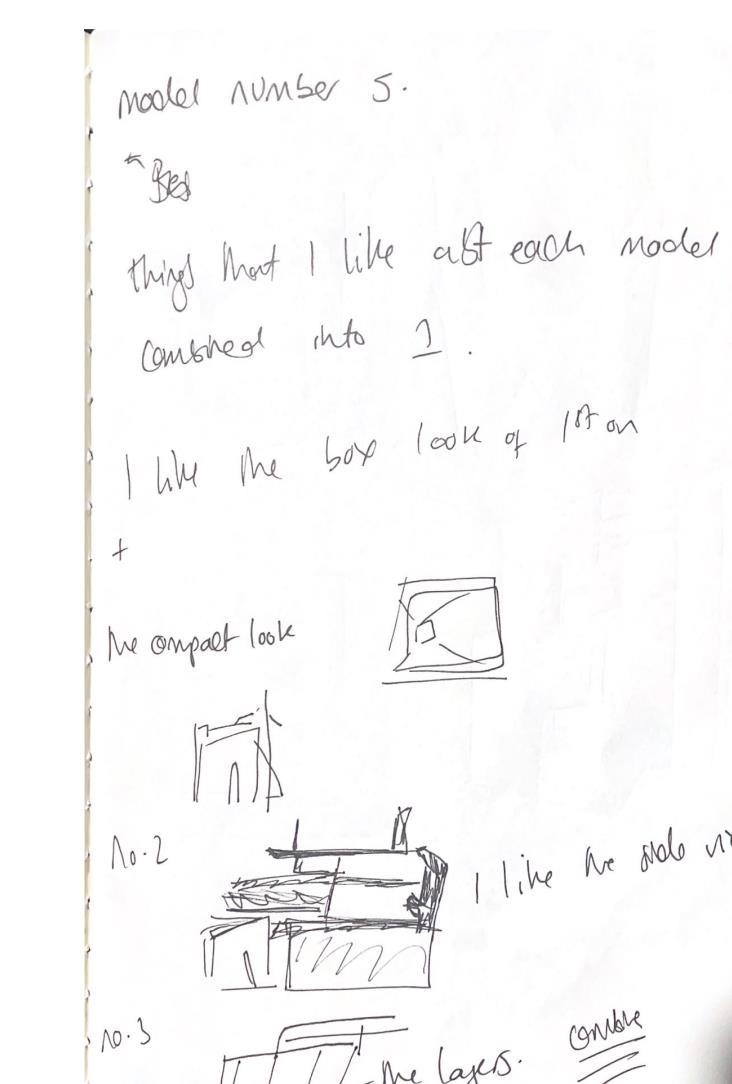 model number 5.
things that I like abt each model
combined into 1.
I like the box look of 1st on
+
the compact look
No.2
I like the side vi
no.3
combine
the layers.